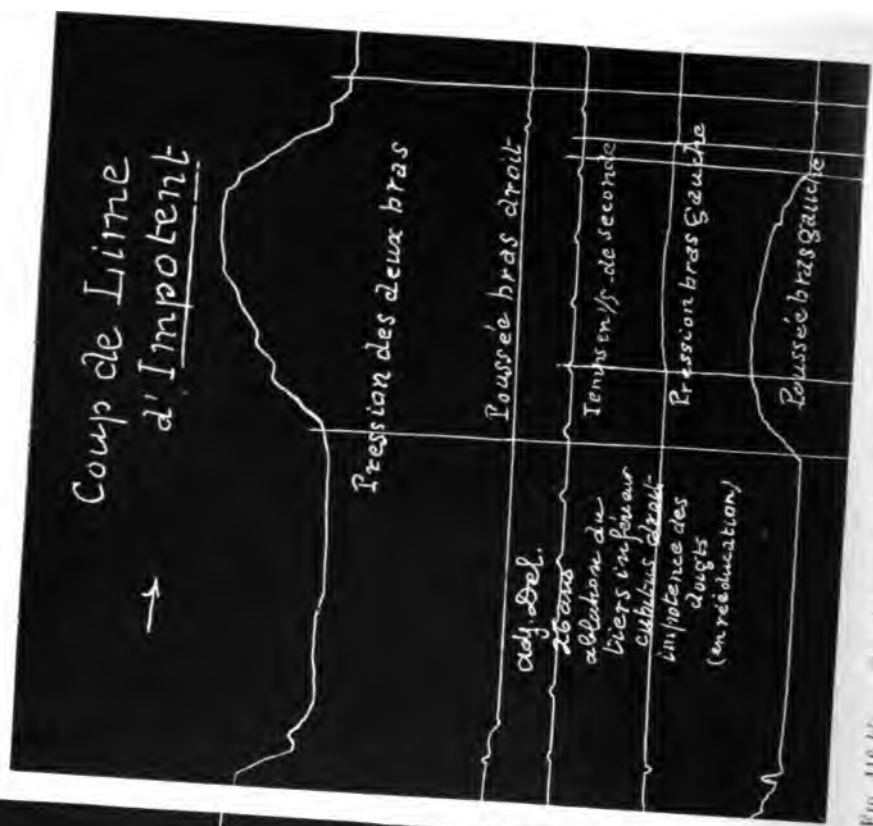 Coup de Lime
d'Impotent
Pression des deux bras
Poussée bras droit
Temps en 1/5 de seconde
Pression bras gauche
Poussée bras gauche
adj. Del.
26 ans
ablation du
tiers inférieur
cubitus droit
impotence des
doigts
(en rééducation)